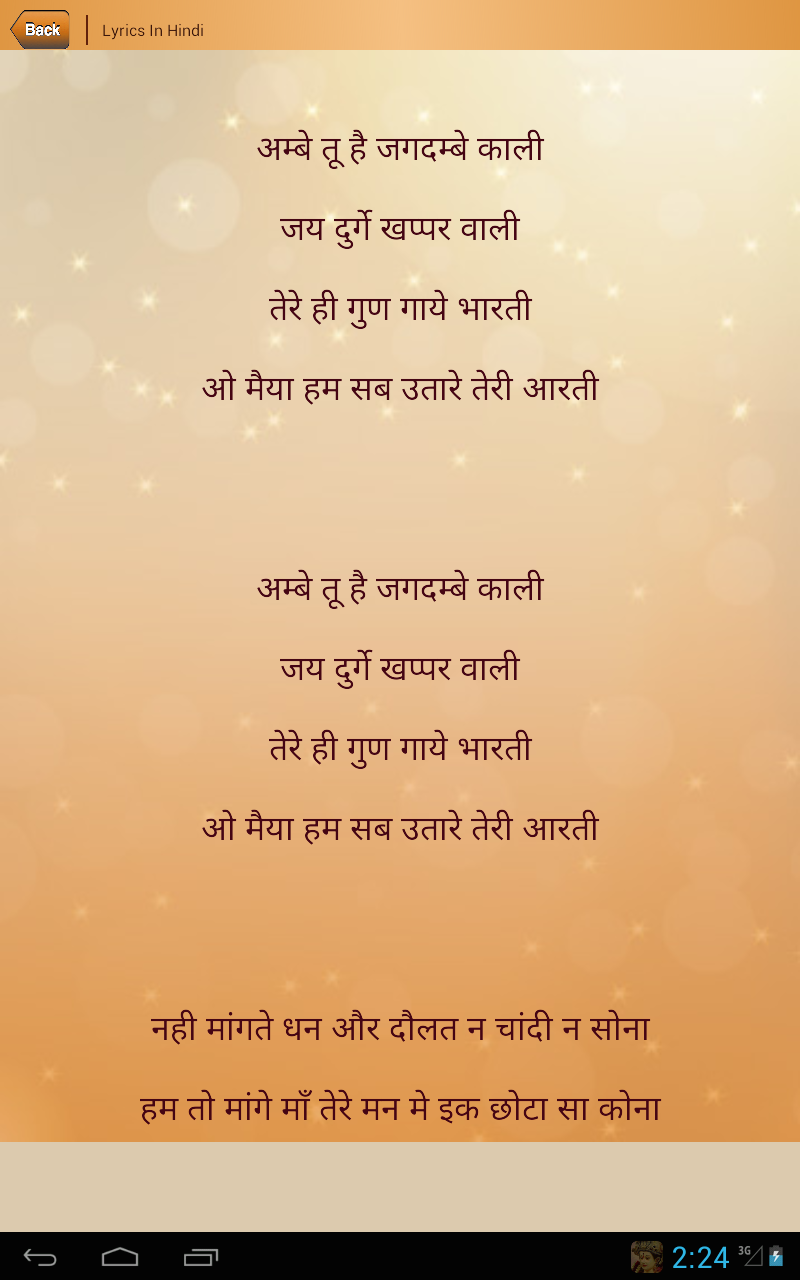 Back
Lyrics In Hindi
अम्बे तू है जगदम्बे काली
जय दुर्गे खप्पर वाली
तेरे ही गुण गाये भारती
ओ मैया हम सब उतारे तेरी आरती
अम्बे तू है जगदम्बे काली
जय दुर्गे खप्पर वाली
तेरे ही गुण गाये भारती
ओ मैया हम सब उतारे तेरी आरती
नही मांगते धन और दौलत न चांदी न सोना
हम तो मांगे माँ तेरे मन मे इक छोटा सा कोना
2:24 3G